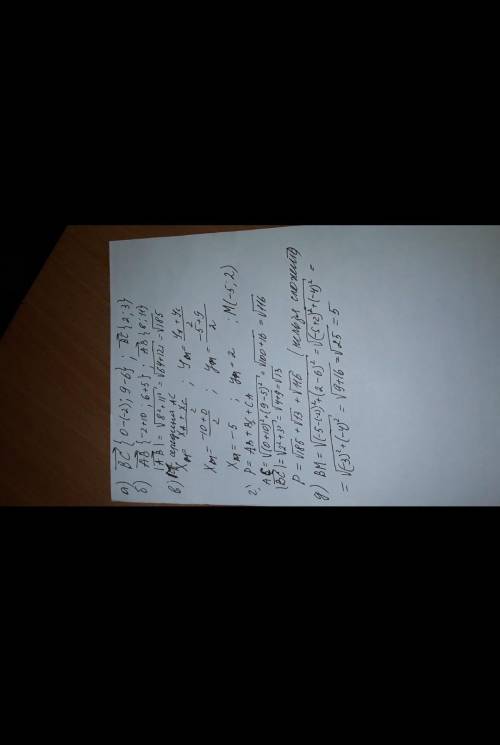 а) BC {0-(-2); 9-6}; BC {2; 3}
б) AB {-2+10; 6+5}; AB {8; 11}
|AB| = √8²+11² = √64+121 = √185
в) M середина AC
Xм = XA + XC / 2 ; Yм = YA + YC / 2
Xм = -10+0 / 2 ; Yм = -5+9 / 2
Xм = -5 ; Yм = 2 ; M(-5; 2)
г) P = AB + BC + CA
AC = √(0+10)²+(9-5)² = √100+16 = √116
|BC| = √2²+3² = √4+9 = √13
P = √185 + √13 + √116 (нельзя сложить)
д) BM = √(-5-(-2))²+(2-6)² = √(-5+2)²+(-4)² =
= √(-3)²+(-4)² = √9+16 = √25 = 5